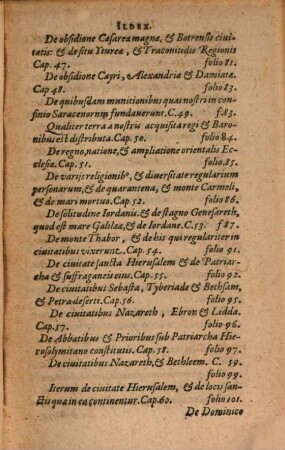 INDEX.
De obsidione Cæsareæ magnæ, & Botrensis ciui-
tatis: & de situ Ytureæ, & Traconitidis Regionis
Cap. 47. folio 81.
De obsidione Capri, Alexandriæ & Damiatæ.
Cap 48. folio 83.
De quibusdam munitionibus quas nostri in con-
finio Saracenorum fundauerunt. C. 49. f. 83.
Qualiter terra a nostris acquisita regi & Baro-
nibus est distributa. Cap. 50. folio 84.
De regno, natione, & ampliatione orientalis Ec-
clesiæ. Cap. 51. folio. 85.
De varijs religionibꝰ, & diuersitate regularium
personarum, & de quarantena, & monte Carmeli,
& de mari mortuo. Cap. 52. folio 86.
De solitudine Iordanis. & de stagno Genesareth,
quod est mare Galilææ, & de Iordane. C. 53. f 87.
De monte Thabor, & de his qui regulariter in
ciuitatibus vixerunt. Cap. 54. folio. 91.
De ciuitate sancta Hierusalem & de Patriar-
cha & suffraganeis eius. Cap. 55. folio 92.
De ciuitatibus Sebasta, Tyberiade & Bethsam,
& Petra deserti. Cap. 56. folio 95.
De ciuitatibus Nazareth, Ebron & Lidda.
Cap. 57. folio 96.
De Abbatibus & Prioribus sub Patriarcha Hie-
rosolymitano constitutis. Cap. 58. folio 97.
De ciuitatibus Nazareth, & Bethleem. C. 59.
folio 99.
Iterum de ciuitate Hierusalem, & de locis san-
ctis quæ in ea continentur. Cap. 60. folio 101.
De Dominico